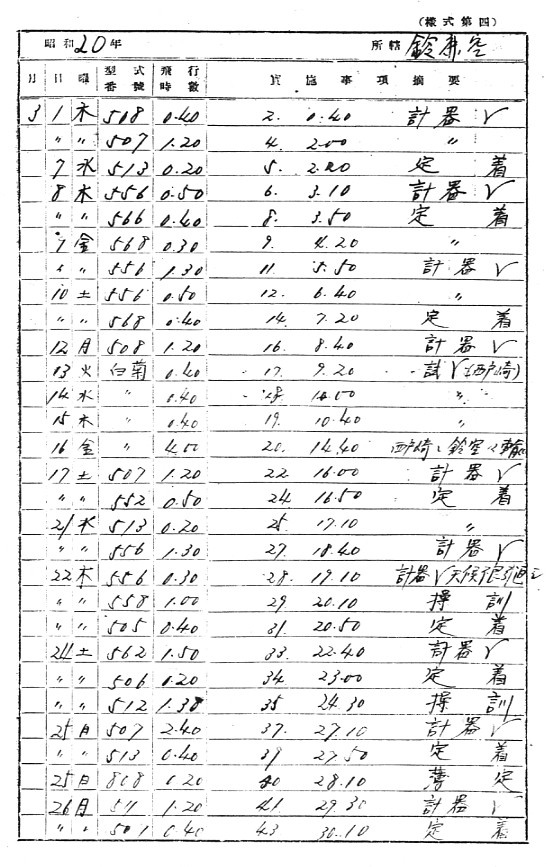 (樣式第四)
昭和20年 所轄 鈴鹿空
月 日 曜 型式番號 飛行時數 實施事項摘要
3 1 木 508 0.40 2. 0.40 計器 〃
〃 〃 507 1.20 4. 2.00 〃
7 水 513 0.20 5. 2.20 定着
8 木 556 0.50 6. 3.10 計器
〃 〃 566 0.40 8. 3.50 定着
9 金 568 0.30 9. 4.20 〃
〃 〃 556 1.30 11. 5.50 計器
10 土 556 0.50 12. 6.40 〃
〃 〃 568 0.40 14. 7.20 定着
12 月 508 1.20 16. 8.40 計器
13 火 白菊 0.40 17. 9.20 試 (西戸崎)
14 水 〃 0.40 18. 10.00 〃
15 木 〃 0.40 19. 10.40 〃
16 金 〃 4.00 20. 14.40 西戸崎 鈴空
17 土 507 1.20 22. 16.00 計器
〃 〃 552 0.50 24. 16.50 定着
21 水 513 0.20 25 17.10 〃
〃 〃 556 1.30 27. 18.40 計器
22 木 556 0.30 28. 19.10 計器 天候不良引返
〃 〃 558 1.00 29. 20.10 操訓
〃 〃 505 0.40 31. 20.50 定着
24 土 562 1.50 33. 22.40 計器
〃 〃 506 0.20 34 23.00 定着
〃 〃 512 1.30 35 24.30 操訓
25 日 507 2.40 37. 27.10 計器
〃 〃 513 0.40 39 27.50 定着
25 日 808 0.20 40 28.10 薄定
26 月 511 1.20 41 29.30 計器
〃 〃 501 0.40 43 30.10 定着